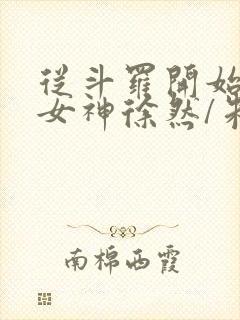 從斗羅開始
女神徐然/朱
南棉西霞